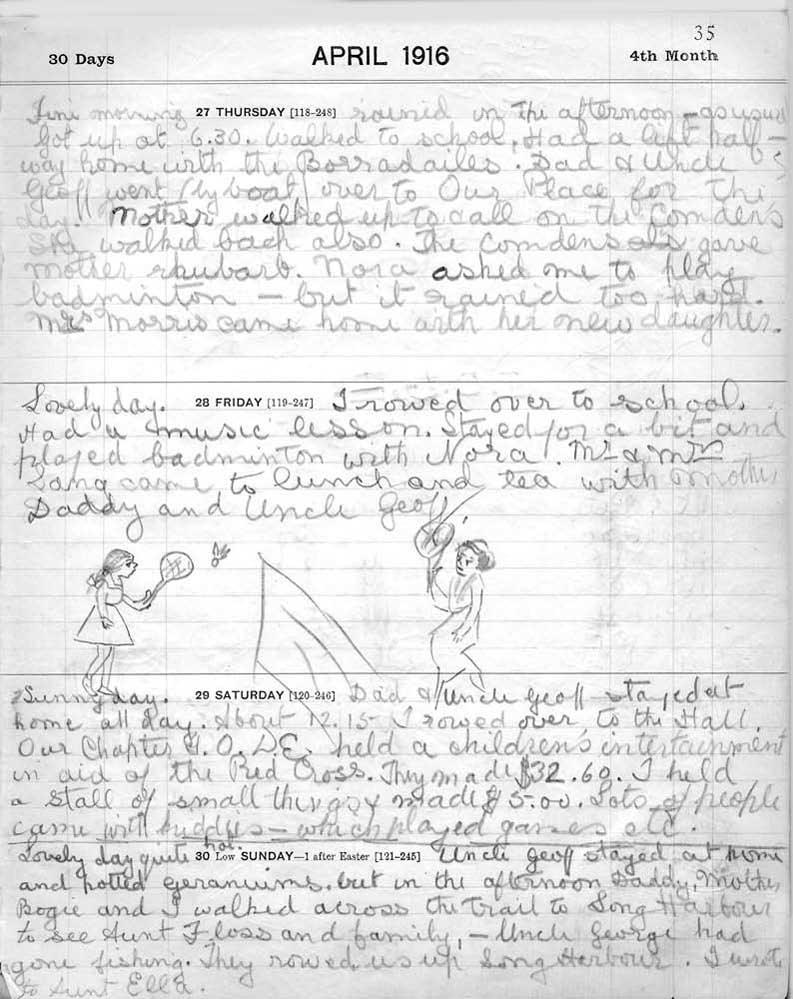 35
30 Days APRIL 1916 4th Month
27 THURSDAY [118-248]
Fine morning rained in the afternoon - as usual
Got up at 6.30. Walked to school, Had a lift half-
way home with the Borradailes. Dad & Uncle
Geoff went (by boat) over to Our Place for the
day. Mother walked up to call on the Comdens
She walked back also. The Comdens gave
mother rhubarb. Nora asked me to play
badminton - but it rained too hard.
Mrs Morris came home with her new daughter.
28 FRIDAY [119-247]
Lovely day. I rowed over to school.
Had a music lesson. Stayed for a bit and
played badminton with Nora. Mr & Mrs
Lang came to lunch and tea with mother
Daddy and Uncle Geoff.
29 SATURDAY [120-246]
Sunny day. Dad & Uncle Geoff stayed at
home all day. About 12.15 I rowed over to the Hall.
Our Chapter I.O.D.E. held a children's intertainment
in aid of the Red Cross. They made $32.60. I held
a stall of small things made $5.00. Lots of people
came with kiddies - which played games etc.
30 Low SUNDAY—1 after Easter [121-245]
Lovely day quite hot. Uncle Geoff stayed at home
and potted geraniums. but in the afternoon Daddy, Mother
Bogie and I walked across the trail to Long Harbour
to see Aunt Floss and family, - Uncle George had
gone fishing. They rowed us up Long Harbour. I wrote
to Aunt Ella.